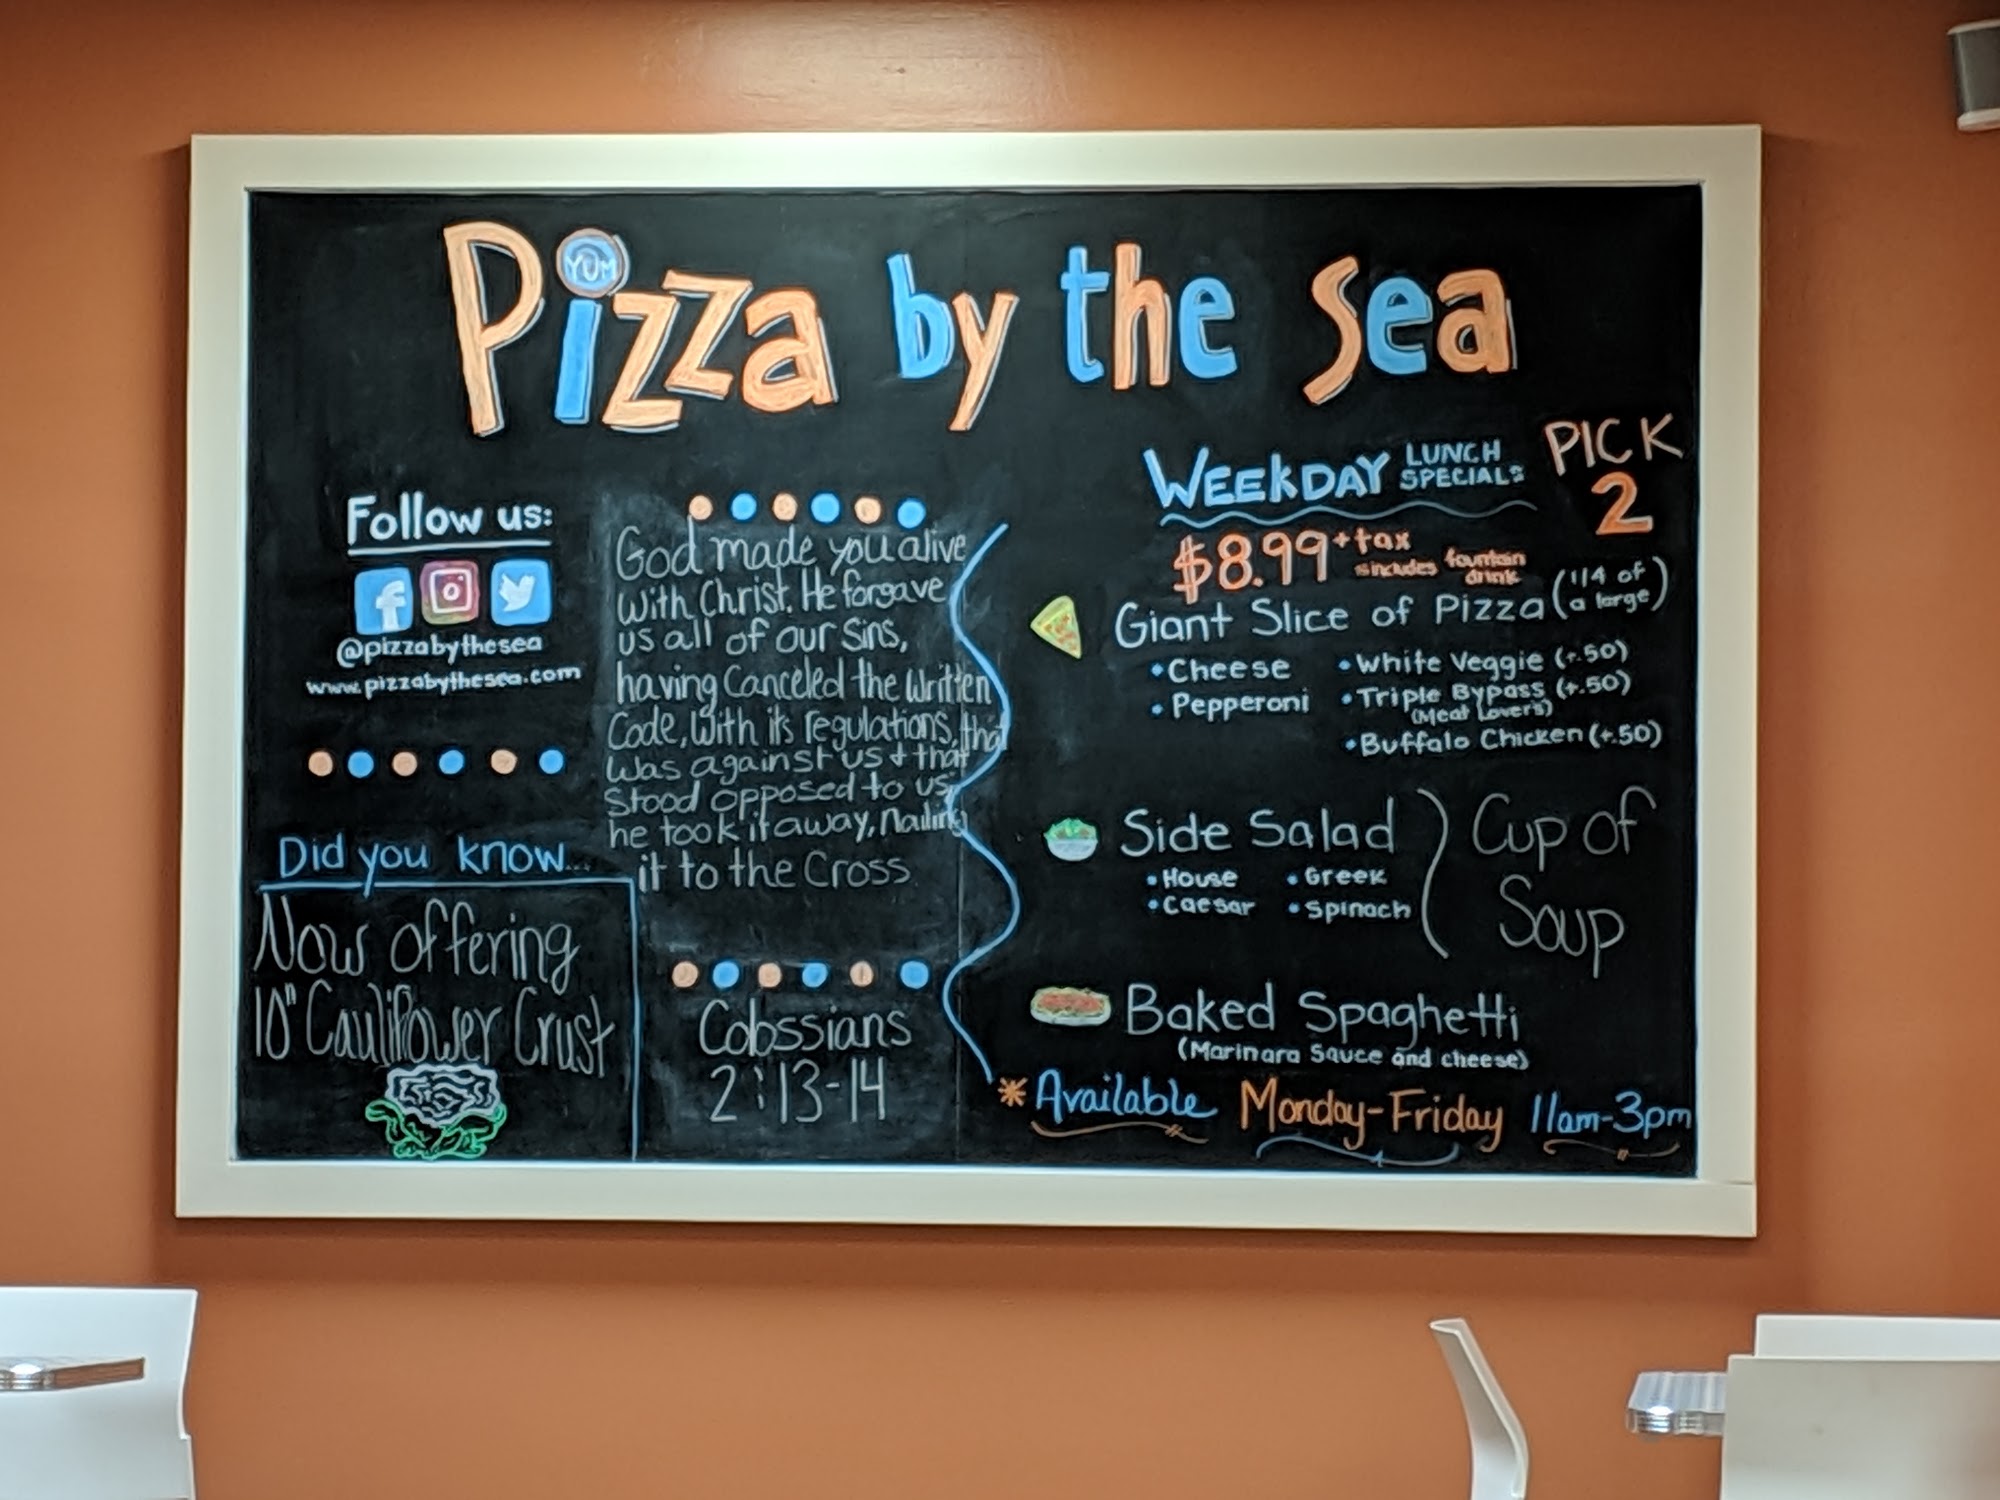 Pizza by the Sea
YUM
Follow us:
@pizzabythesea
www.pizzabythesea.com
Did you know...
Now offering
10" Cauliflower Crust
God made you alive
with Christ. He forgave
us all of our Sins,
having Canceled the Written
Code, With its regulations, that
was against us + that
Stood opposed to us;
he took it away, nailing
it to the Cross
Colossians
2:13-14
WEEKDAY LUNCH
SPECIALS
PICK
2
$8.99 + tax
includes fountain
drink
Giant Slice of Pizza (1/4 of
a large)
• Cheese
• Pepperoni
• White Veggie (+.50)
• Triple Bypass (+.50)
(Meat Lovers)
• Buffalo Chicken (+.50)
Side Salad
• House
• Caesar
• Greek
• Spinach
Cup of
Soup
Baked Spaghetti
(Marinara Sauce and cheese)
* Available Monday-Friday 11am-3pm